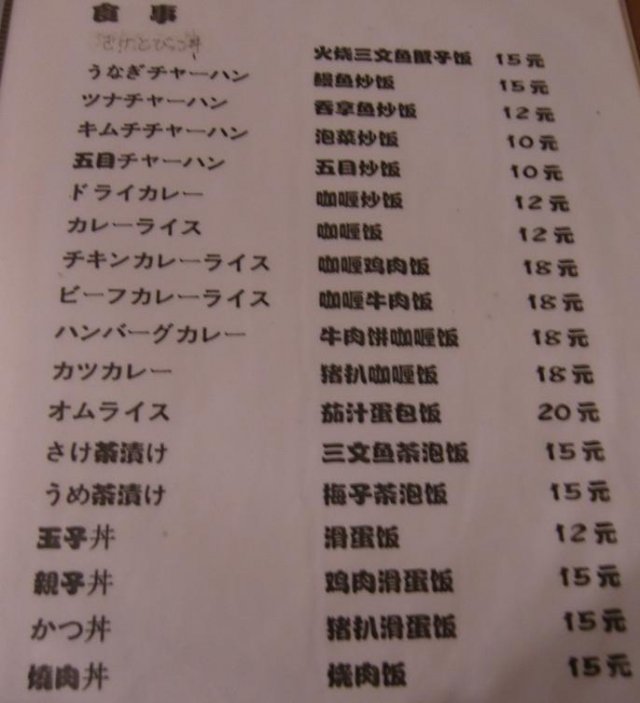 食事
火烧三文鱼蟹子饭 15元
うなぎチャーハン 鳗鱼炒饭 15元
ツナチャーハン 吞拿鱼炒饭 12元
キムチチャーハン 泡菜炒饭 10元
五目チャーハン 五目炒饭 10元
ドライカレー 咖喱炒饭 12元
カレーライス 咖喱饭 12元
チキンカレーライス 咖喱鸡肉饭 18元
ビーフカレーライス 咖喱牛肉饭 18元
ハンバーグカレー 牛肉饼咖喱饭 18元
カツカレー 猪扒咖喱饭 18元
オムライス 茄汁蛋包饭 20元
さけ茶漬け 三文鱼茶泡饭 15元
うめ茶漬け 梅子茶泡饭 15元
玉子丼 滑蛋饭 12元
親子丼 鸡肉滑蛋饭 15元
かつ丼 猪扒滑蛋饭 15元
燒肉丼 烧肉饭 15元